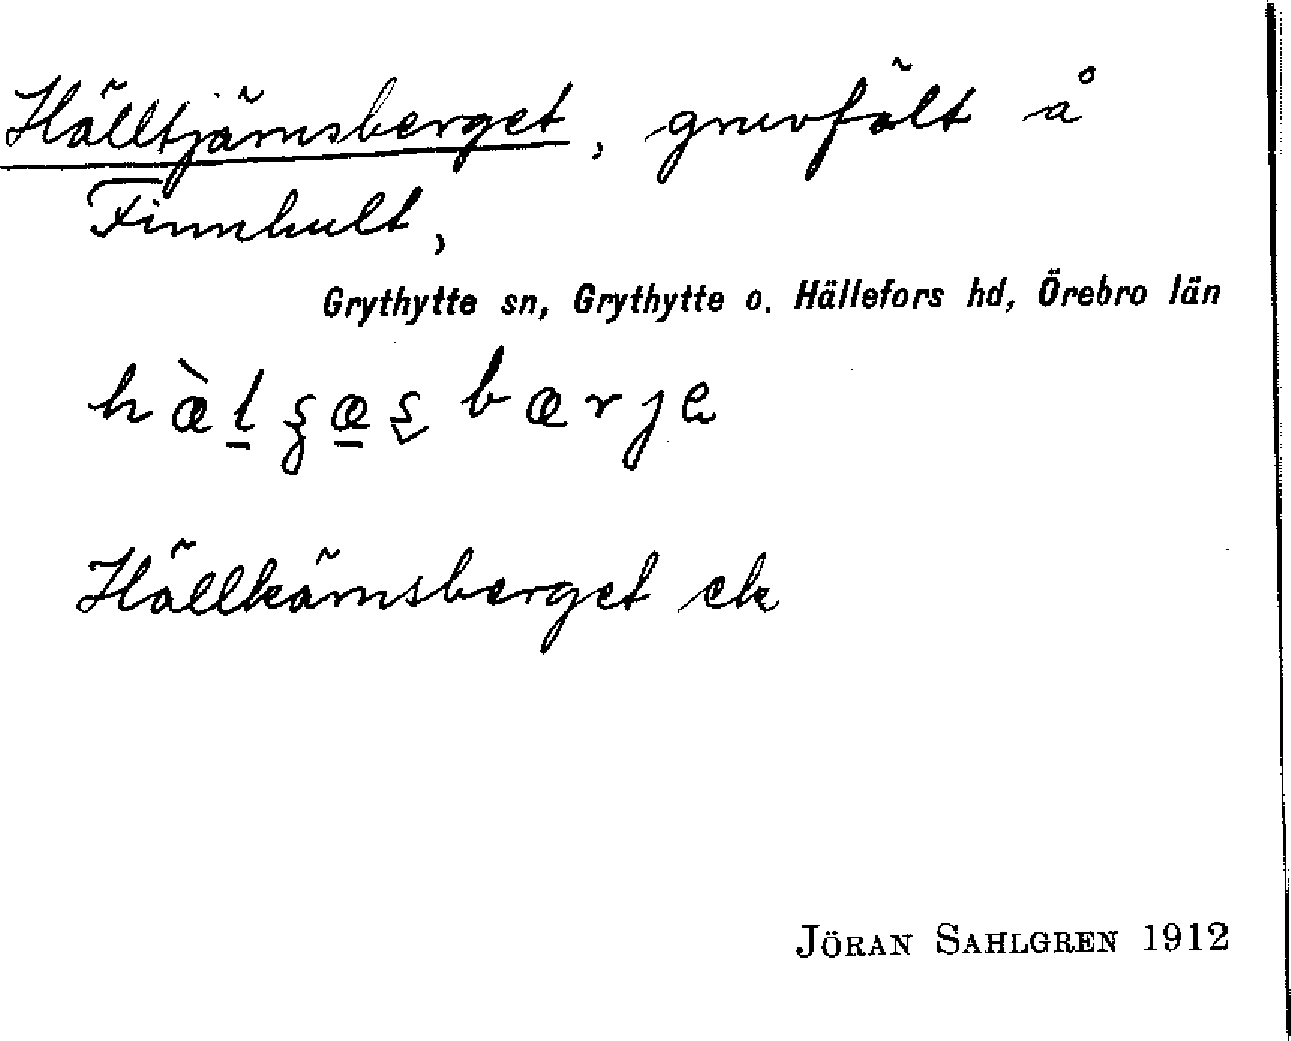 Hälltjärnsberget, gruvfält å
Finnhult,
Grythytte sn, Grythytte o. Hällefors hd, Örebro län
Hällkärnsberget ek
JÖRAN SAHLGREN 1912